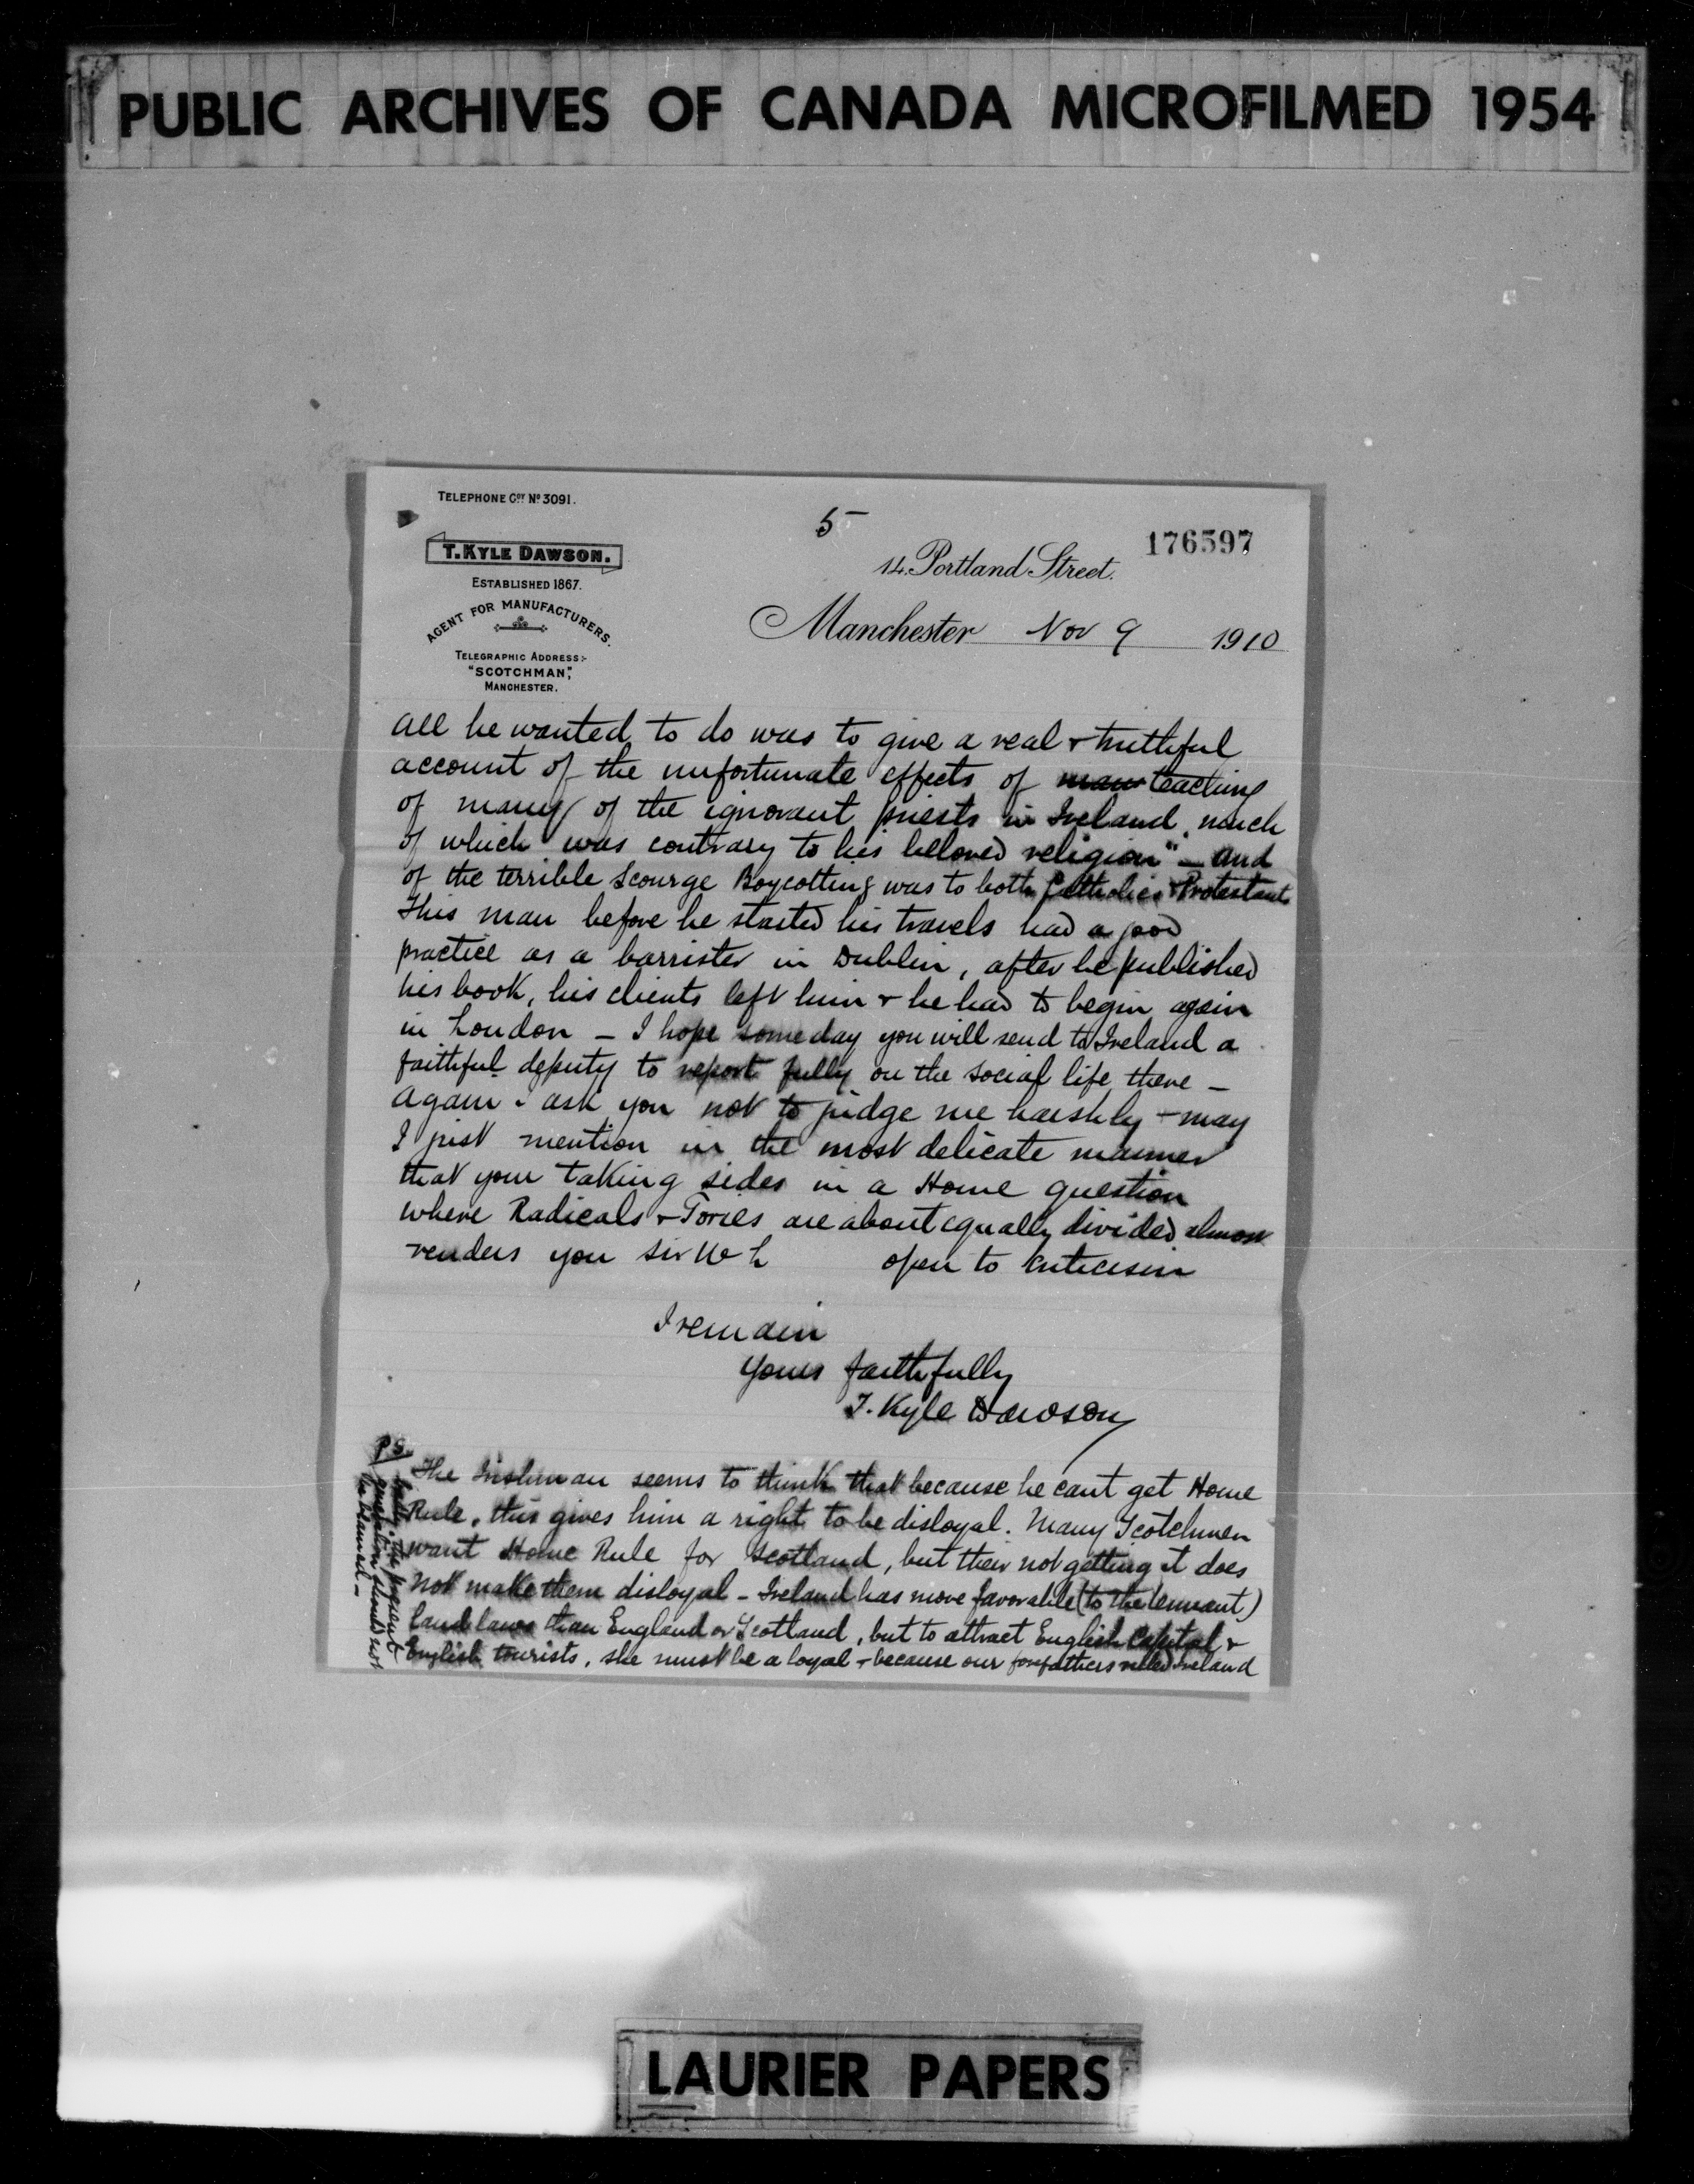 PUBLIC ARCHIVES OF CANADA MICROFILMED 1954
TELEPHONE CITY No 3091.
5
176597
T. KYLE DAWSON.
ESTABLISHED 1867.
AGENT FOR MANUFACTURERS.
TELEGRAPHIC ADDRESS:-
"SCOTCHMAN",
MANCHESTER.
14. Portland Street.
Manchester Nov 9 1910
all he wanted to do was to give a real + truthful
account of the unfortunate effects of teaching
of many of the ignorant priests in Ireland, much
of which was contrary to his beloved religion" - and
of the terrible scourge Boycotting was to both Catholics + Protestants
This man before he started his travels had a good
practice as a barrister in Dublin, after he published
his book, his clients left him + he had to begin again
in London - I hope someday you will send to Ireland a
faithful deputy to report fully on the social life there -
Again I ask you not to judge me harshly - may
I just mention in the most delicate manner
that your taking sides in a Home question
where Radicals + Tories are about equally divided almost
renders you Sir W L open to Criticism
I remain
Yours faithfully
T. Kyle Dawson
P.S.
The Irishman seems to think that because he cant get Home
Rule, this gives him a right to be disloyal. Many Scotchmen
want Home Rule for Scotland, but their not getting it does
not make them disloyal - Ireland has more favorable (to the tennant)
land laws than England or Scotland, but to attract English Capital +
English tourists, she must be a loyal - because our forefathers ruled Ireland
badly, the present
generation should not
be blamed -
LAURIER PAPERS